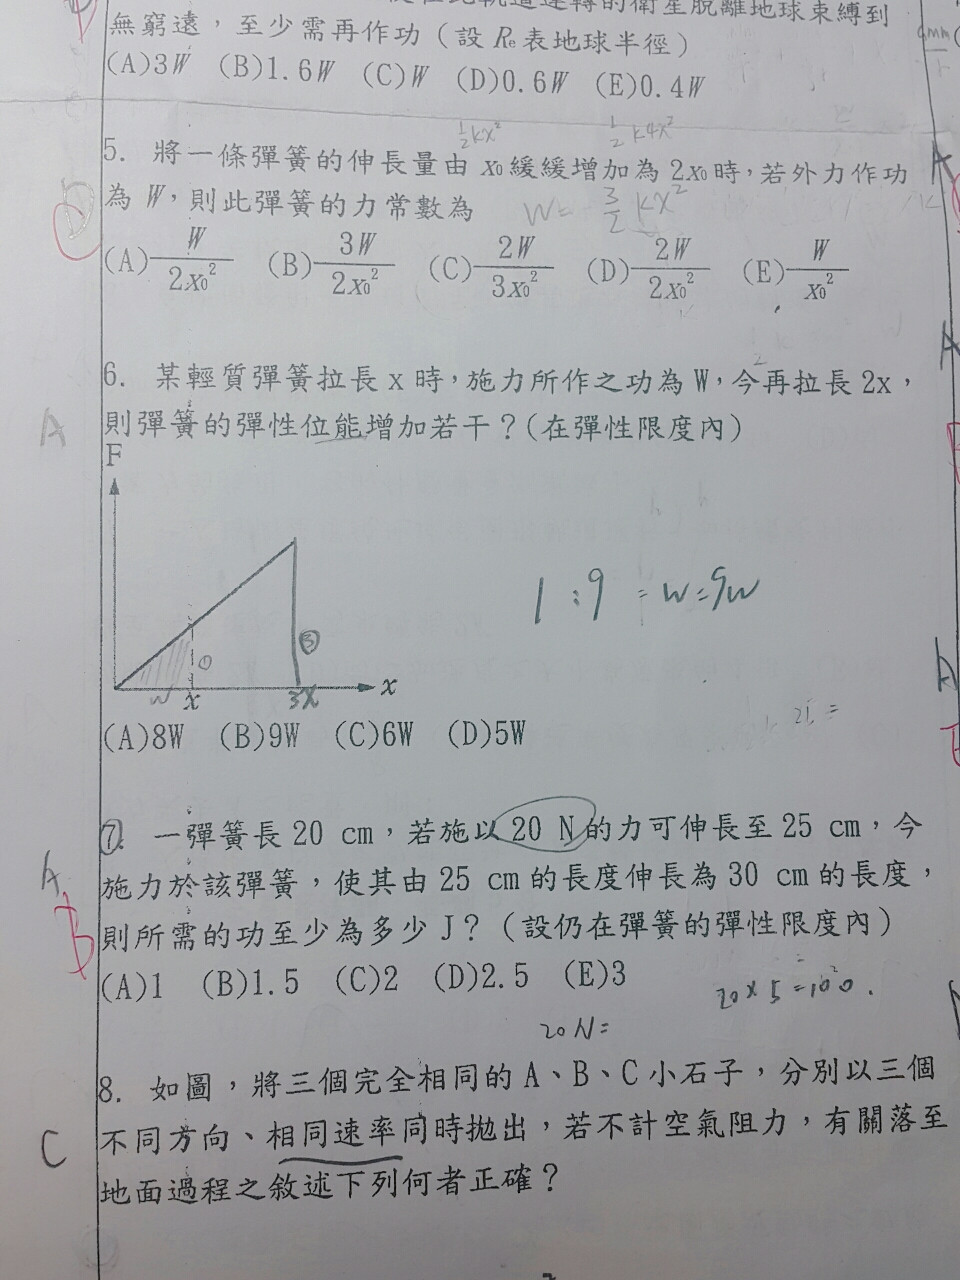 無窮遠，至少需再作功（設 Re 表地球半徑）
(A)3W (B)1.6W (C)W (D)0.6W (E)0.4W
½kx² ½k4x²
5. 將一條彈簧的伸長量由 x0 緩緩增加為 2x0 時，若外力作功
為 W，則此彈簧的力常數為 W= 3/2 kx²
(A) W/2x0² (B) 3W/2x0² (C) 2W/3x0² (D) 2W/2x0² (E) W/x0²
6. 某輕質彈簧拉長 x 時，施力所作之功為 W，今再拉長 2x，
A 則彈簧的彈性位能增加若干？（在彈性限度內）
F
1:9 = W:9W
W x 3X x
(A)8W (B)9W (C)6W (D)5W
7. 一彈簧長 20 cm，若施以 20 N 的力可伸長至 25 cm，今
A 施力於該彈簧，使其由 25 cm 的長度伸長為 30 cm 的長度，
B 則所需的功至少為多少 J？（設仍在彈簧的彈性限度內）
(A)1 (B)1.5 (C)2 (D)2.5 (E)3
20×5=100.
20N=
8. 如圖，將三個完全相同的 A、B、C 小石子，分別以三個
C 不同方向、相同速率同時拋出，若不計空氣阻力，有關落至
地面過程之敘述下列何者正確？